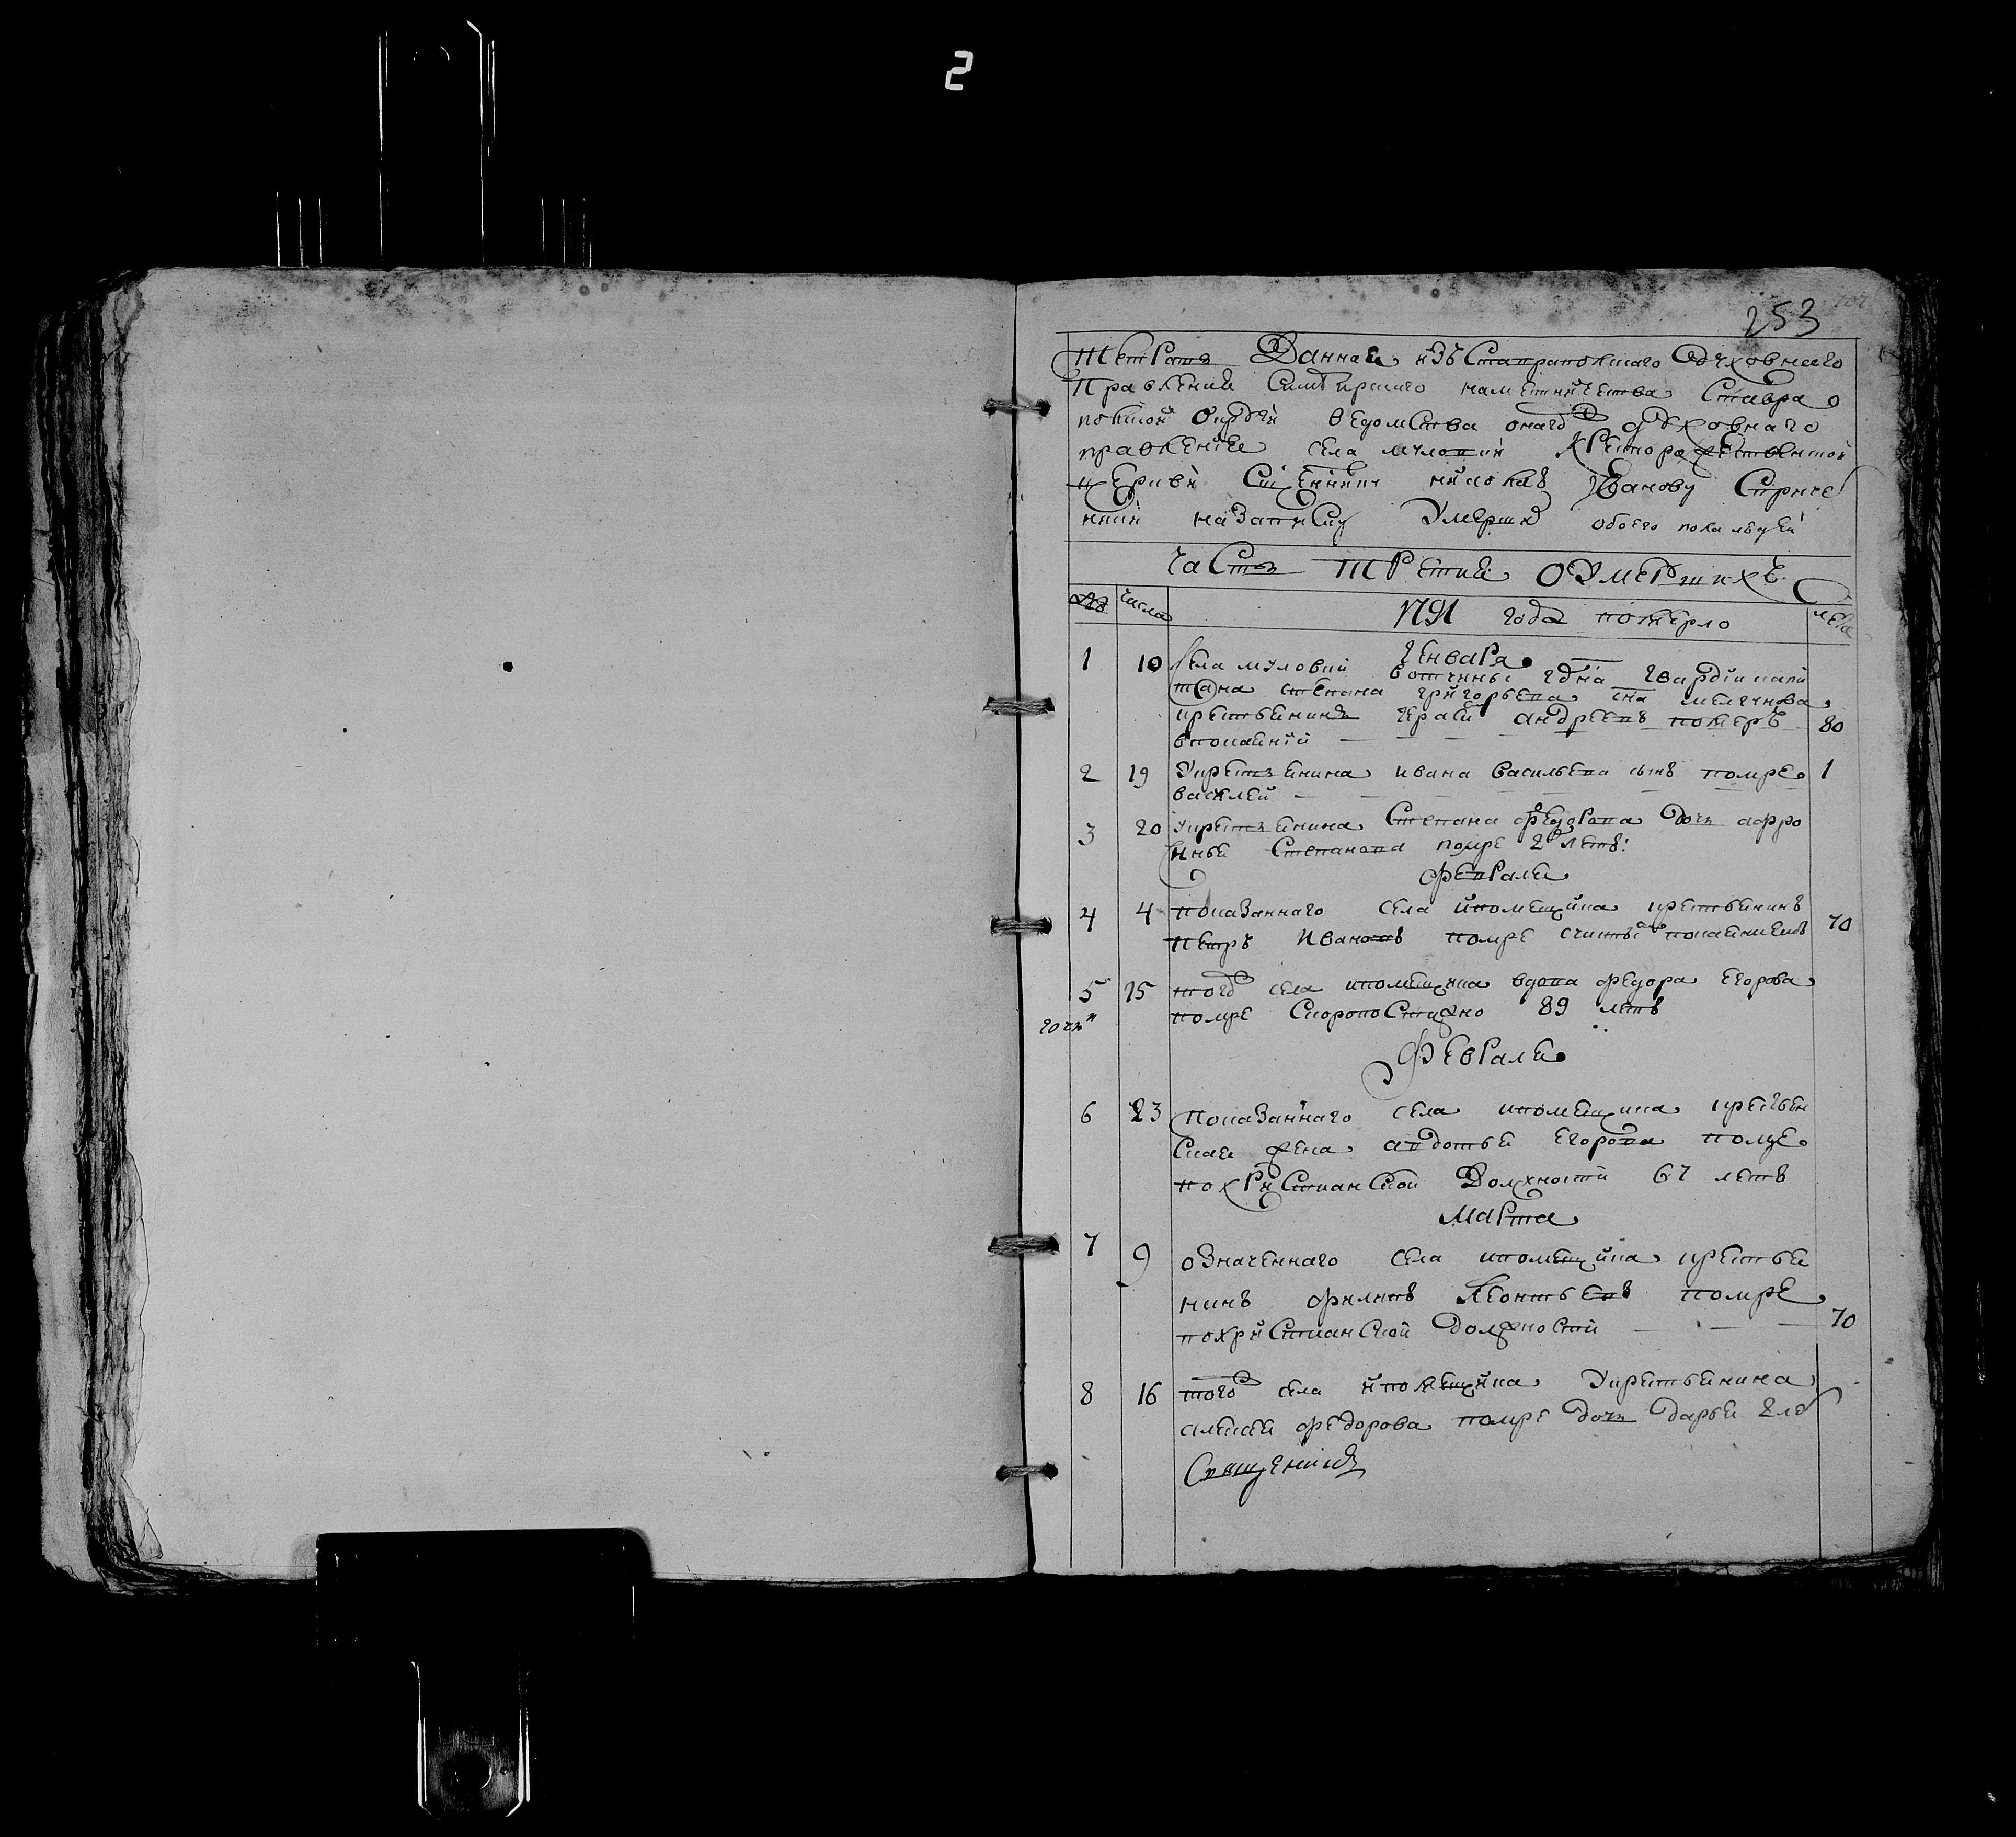 2
253
Тетрать Данная изъ Ставрополскаго Духовнаго
Правления Симбирскаго наместничества Ставро
полской округи ведомства онаго духовнаго
правления села мулопки Хрсторожественской
церкви Сщеннику николаю Иванову Сприче
тники на Записку Умерших обоего пола людей
часть Третия О Умершихъ
числа 1791 года померло лета
Генваря
1 10 села муловки вотчины гдна гвардии капи
тана степана григорьева сна мелгунова
крестьянинъ андреевъ померъ 80
впокаянии
2 19 У крестьянина ивана васильева сынъ помре 1
василей
3 20 У крестьянина Степана федорова дочь афро
синья Степанова помре 2 летъ
февраля
4 4 показаннаго села ипомещика крестьянинъ 70
петръ Ивановъ помре покаяниемъ
5 15 того села ипомещика вдова федора егорова
помре Скоропостижно 89 летъ
Февраля
6 23 показаннаго села ипомещика крестьян
ская жена авдотья егорова помре
похристианской Должности 67 летъ
Марта
7 9 означеннаго села ипомещика крестья
нинъ филипъ Леонтьевъ помре
похристианской должности 70
8 16 того села ипомещика У крестьянина
алексея федорова помре дочь дарья 2 ле
Священникъ